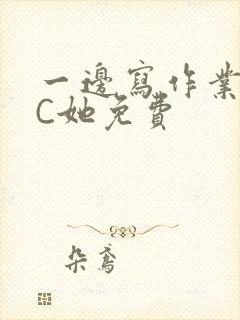 一邊寫作業
C她免費
朵鳶